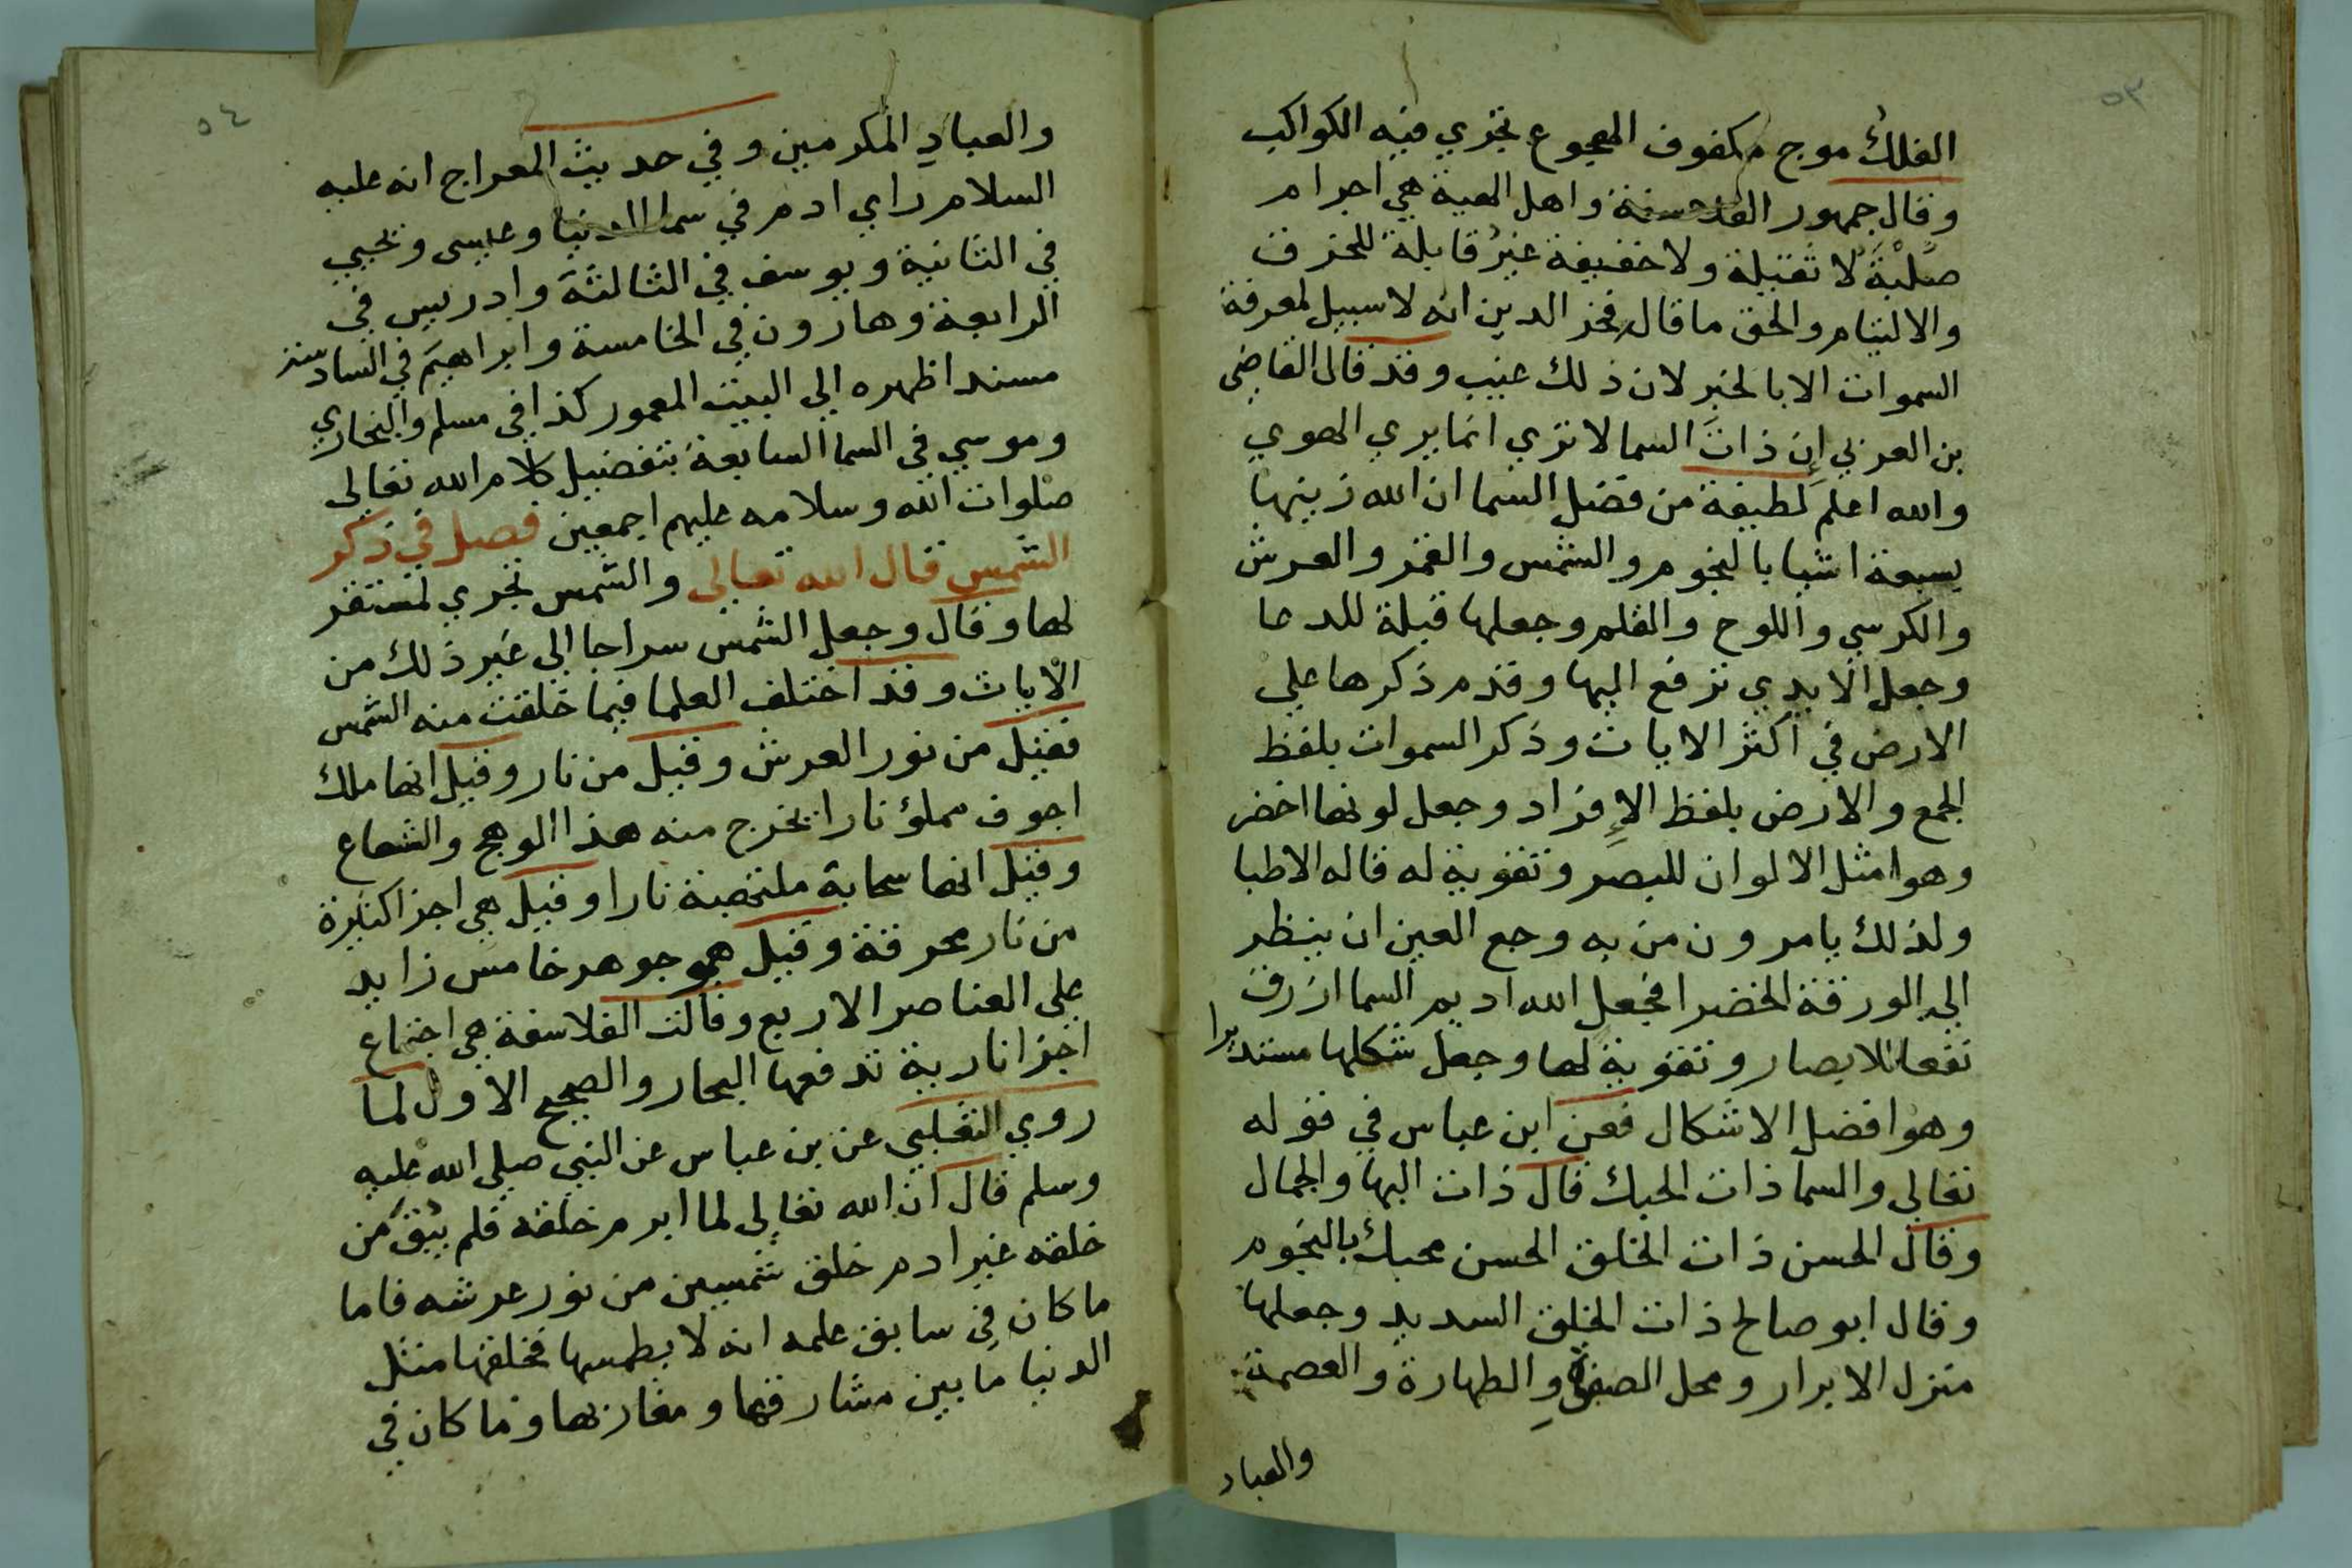 ٥٣
الفلك موج مكفوف المجوع تجري فيه الكواكب
وقال جمهور الفلاسفة واهل الهية هي اجرام
صلبة لا ثقيلة ولا خفيفة غير قابلة للخرق
والالتيام والحق ما قال فخر الدين انه لا سبيل لمعرفة
السموات الا بالخبر لان ذلك غيب وقد قال القاضي
بن العربي إن ذات السما لا تري انما يري الهوي
والله اعلم لطيفة من فضل السما ان الله زينها
بسبعة اشيا بالنجوم والشمس والقمر والعرش
والكرسي واللوح والقلم وجعلها قبلة للدعا
وجعل الايدي ترفع اليها وقدم ذكرها علي
الارض في اكثر الايات وذكر السموات بلفظ
الجمع والارض بلفظ الإفراد وجعل لونها اخضر
وهو امثل الالوان للبصر وتقوية له قاله الاطبا
ولذلك يامرون من به وجع العين ان ينظر
الي الورقة الخضرا فجعل الله اديم السما ازرق
نفعا للابصار وتقوية لها وجعل شكلها مستديرا
وهو افضل الاشكال فعن ابن عباس في قوله
تعالي والسما ذات الحبك قال ذات البها والجمال
وقال الحسن ذات الخلق الحسن محبك بالنجوم
وقال ابو صالح ذات الخلق السديد وجعلها
منزل الابرار ومحل الصفوة والطهارة والعصمة
والعباد
٥٤
والعباد المكرمين وفي حديث المعراج انه عليه
السلام راي ادم في سما الدنيا وعيسى ويحيي
في الثانية ويوسف في الثالثة وادريس في
الرابعة وهارون في الخامسة وابراهيم في السادسة
مسندا ظهره الي البيت المعمور كذا في مسلم والبخاري
وموسي في السما السابعة بتفضيل كلام الله تعالى
صلوات الله وسلامه عليهم اجمعين فصل في ذكر
الشمس قال الله تعالى والشمس تجري لمستقر
لها وقال وجعل الشمس سراجا الي غير ذلك من
الايات وقد اختلف العلما فيما خلقت منه الشمس
فقيل من نور العرش وقيل من نار وقيل انها ملك
اجوف مملؤ نارا يخرج منه هذا الوهج والشعاع
وقيل انها سحابة ملتهبة نارا وقيل هي اجزا كثيرة
من نار محرقة وقيل هو جوهر خامس زايد
على العناصر الاربع وقالت الفلاسفة هي اجتماع
اجزا نارية تدفعها البحار والصحيح الاول لما
روي الثعلبي عن بن عباس عن النبي صلى الله عليه
وسلم قال ان الله تعالي لما ابرم خلقه فلم يبق من
خلقه غير ادم خلق شمسين من نور عرشه فاما
ما كان في سابق علمه انه لا يطمسها فخلقها مثل
الدنيا ما بين مشارقها ومغاربها وما كان في